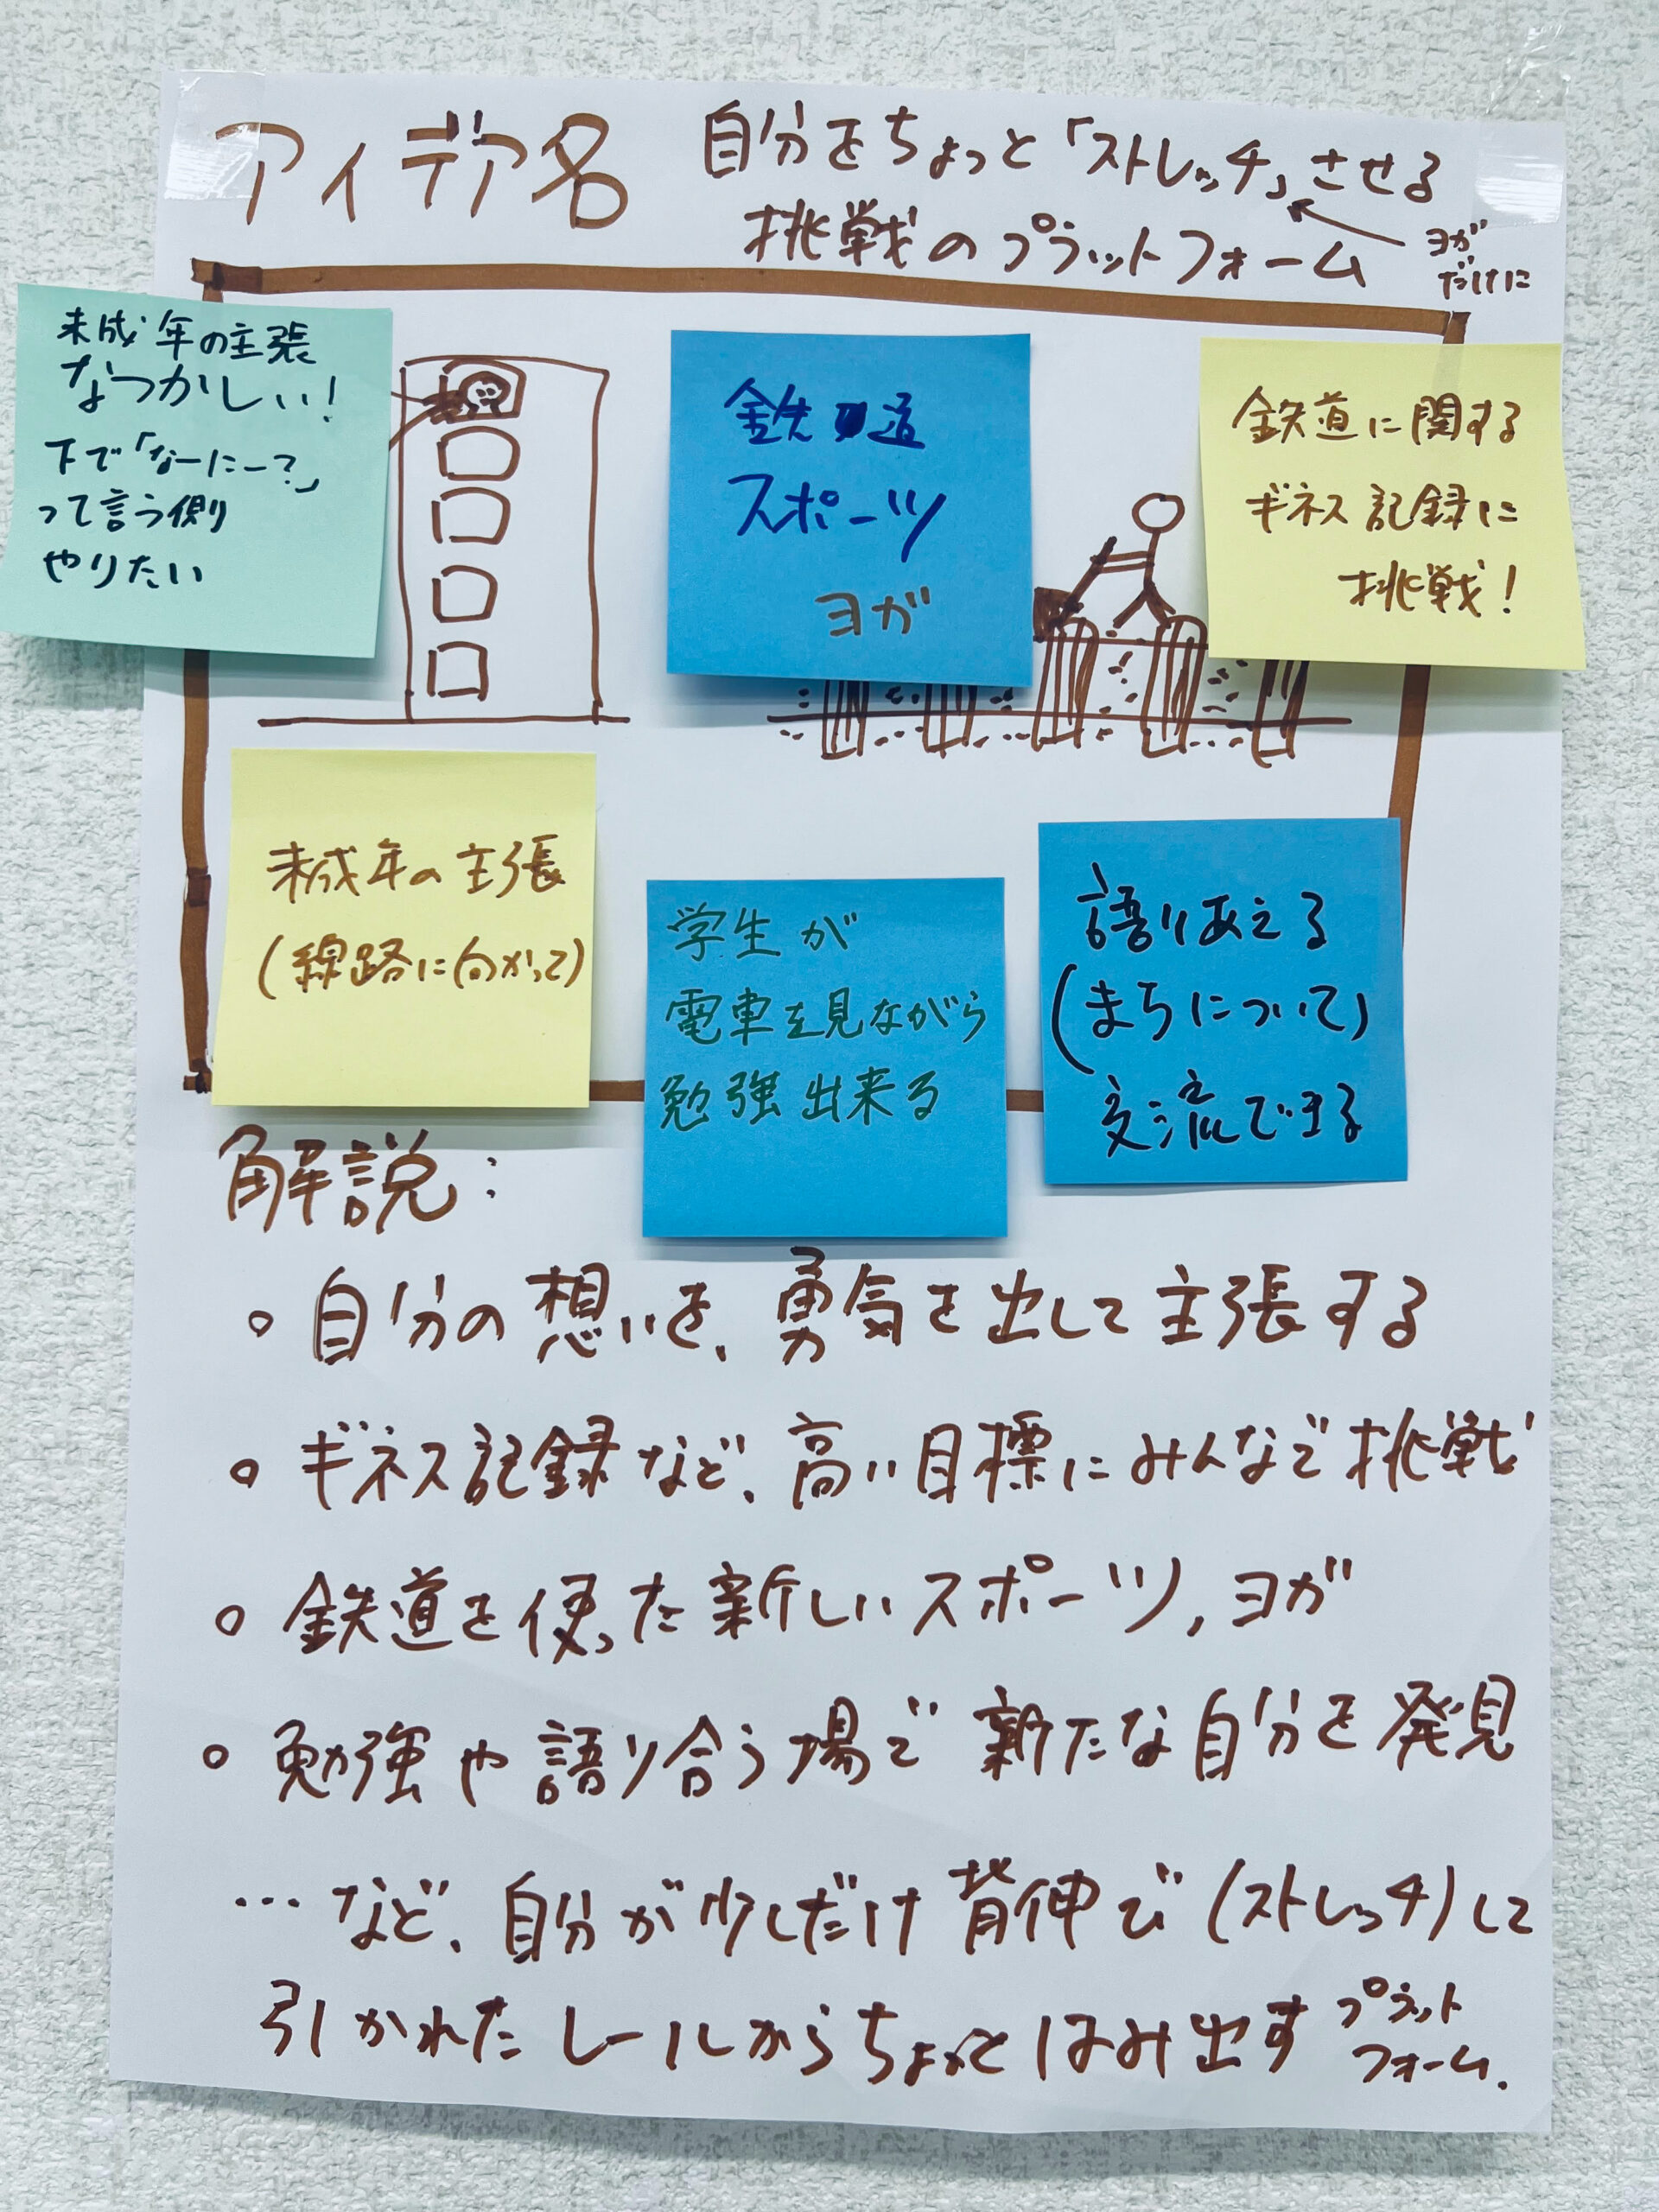 アイデア名
自分をちょっと「ストレッチ」させる
挑戦のプラットフォーム
ヨガ
だけに
未成年の主張
なつかしい!
下で「なーにー?」
って言う側
やりたい
鉄道
スポーツ
ヨガ
鉄道に関する
ギネス記録に
挑戦!
未成年の主張
(線路に向かって)
学生が
電車を見ながら
勉強出来る
語りあえる
(まちについて)
交流できる
解説:
○ 自分の想いを、勇気を出して主張する
○ ギネス記録など、高い目標にみんなで挑戦
○ 鉄道を使った新しいスポーツ,ヨガ
○ 勉強や語り合う場で新たな自分を発見
…など、自分が少しだけ背伸び(ストレッチ)して
引かれたレールからちょっとはみ出すプラット
フォーム.